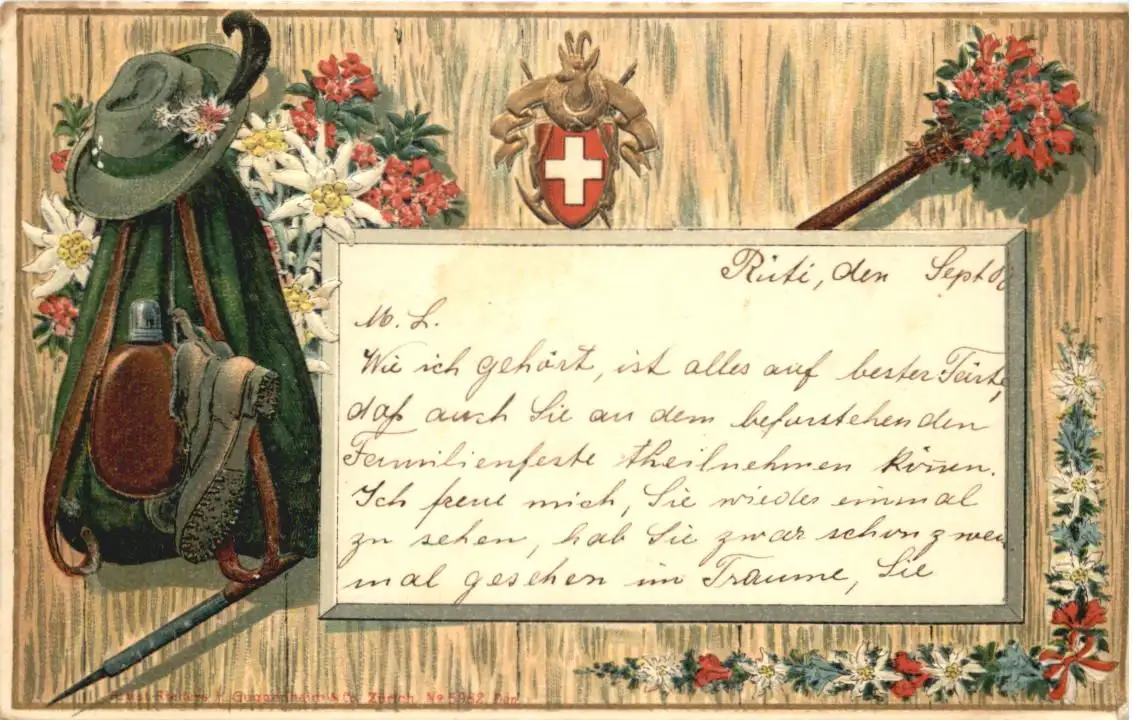 Rüti, den Sept
M. L.
Wie ich gehört, ist alles auf bester
daß auch Sie an dem beforstehenden
Familienfeste theilnehmen können.
Ich freue mich, Sie wieder einmal
zu sehen, hab Sie zwar schon zwei
mal gesehen im Traume, Sie
Guggenheim & Co. Zürich. No 5962